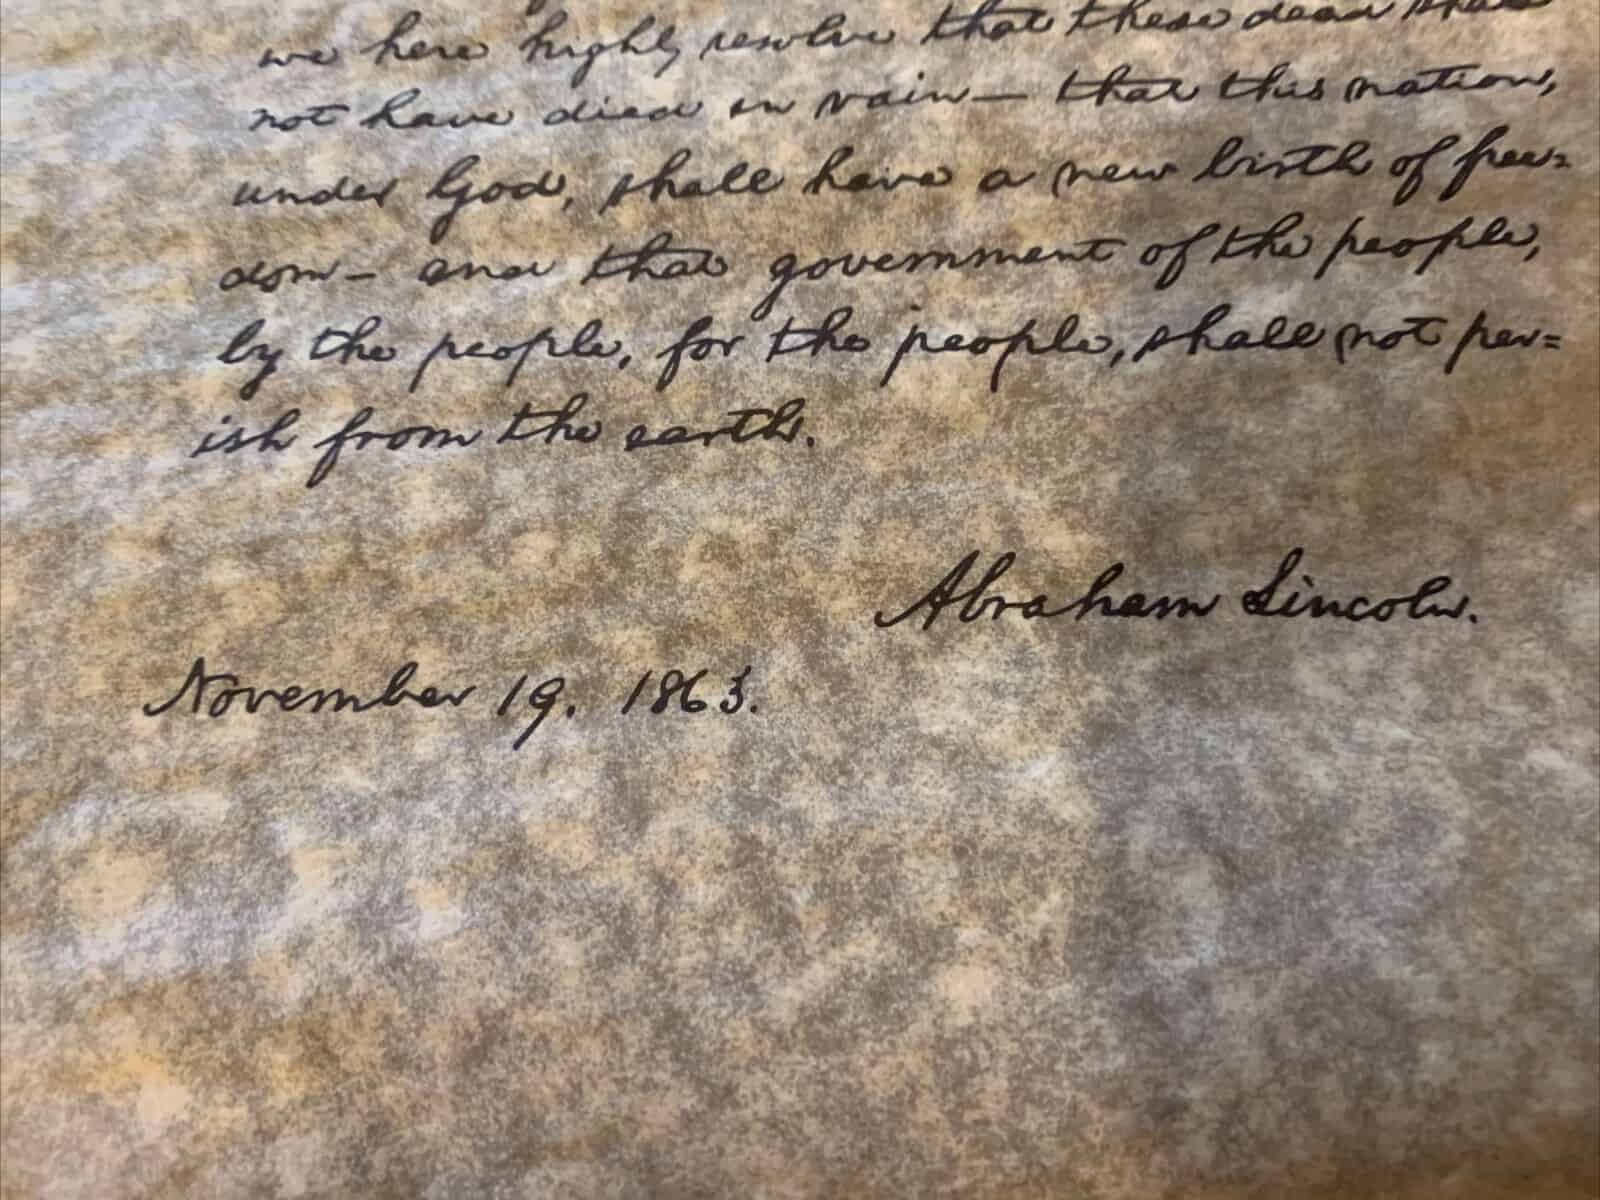 we here highly resolve that these dead shall
not have died in vain— that this nation,
under God, shall have a new birth of free=
dom— and that government of the people,
by the people, for the people, shall not per=
ish from the earth.
Abraham Lincoln.
November 19. 1863.